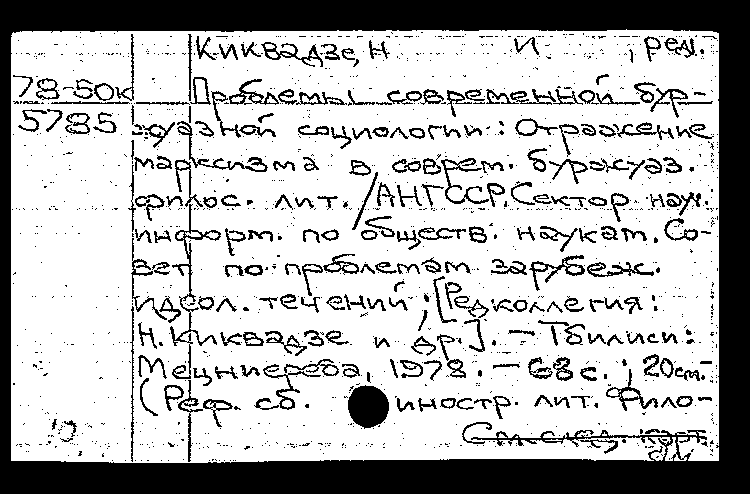 Киквадзе, Н И , ред.
78-50к Проблемы современной бур-
5785 жуазной социологии: Отражение
марксизма в соврем. буржуаз.
филос. лит. / АН ГССР. Сектор науч.
информ. по обществ. наукам. Со-
вет по проблемам зарубеж.
идеол. течений; [Редколлегия:
Н. Киквадзе и др.]. — Тбилиси:
Мецниереба, 1978. — 68 с.; 20 см. —
(Реф. сб. иностр. лит. Фило-
См. след. карт.